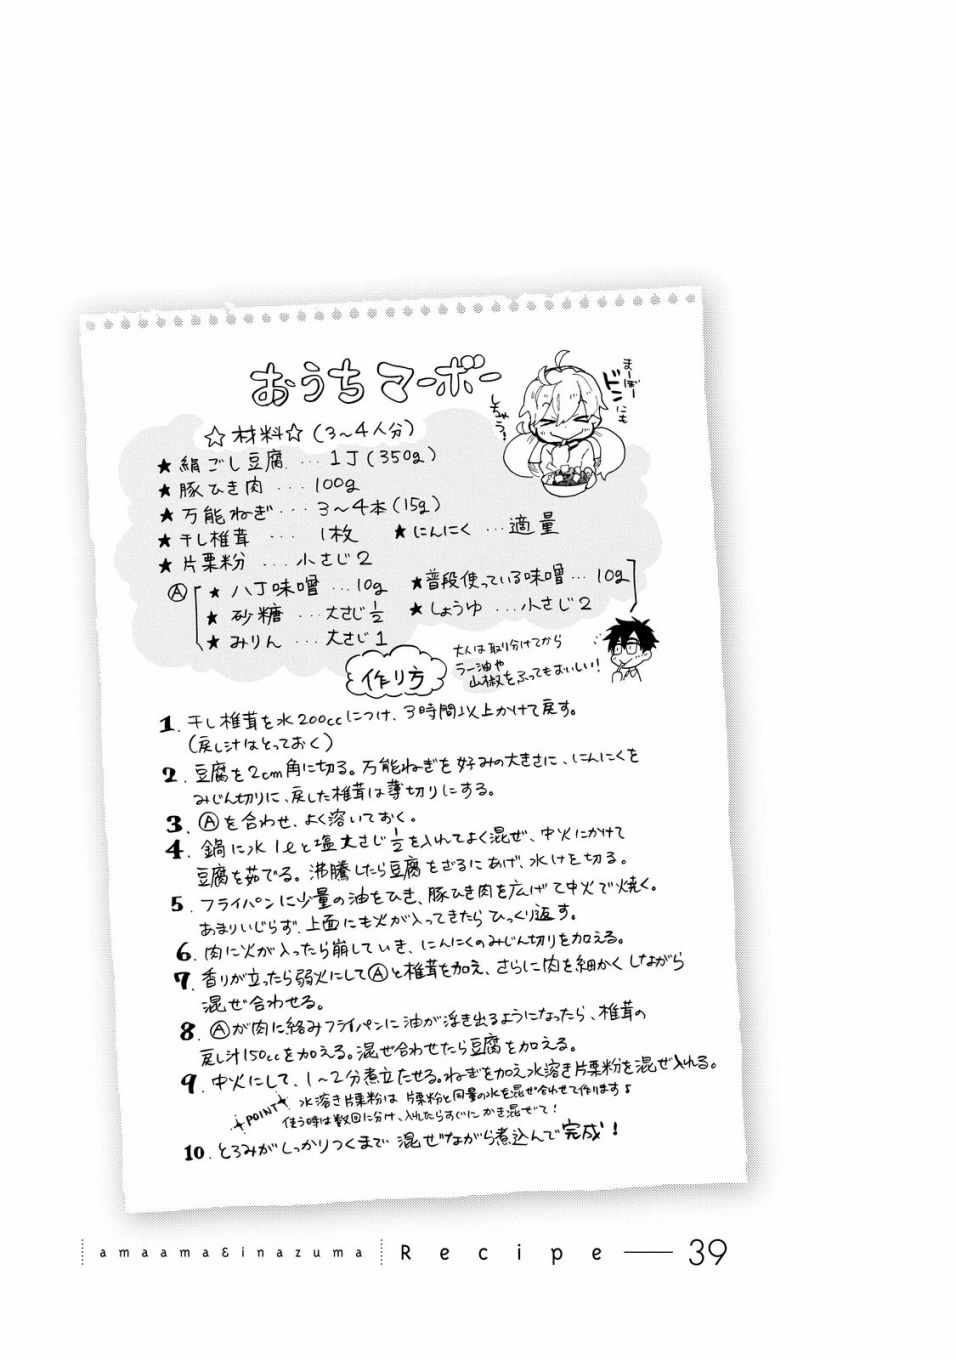 おうちマーボー
まーぼー
ドンにも
しちゃう!
☆材料☆(3〜4人分)
★絹ごし豆腐 … 1丁(350g)
★豚ひき肉 … 100g
★万能ねぎ … 3〜4本(15g)
★干し椎茸 … 1枚 ★にんにく … 適量
★片栗粉 … 小さじ2
Ⓐ ★八丁味噌 … 10g ★普段使っている味噌 … 10g
★砂糖 … 大さじ1/2 ★しょうゆ … 小さじ2
★みりん … 大さじ1
作り方
大人は取り分けてから
ラー油や
山椒をふってもおいしい!
1. 干し椎茸を水200ccにつけ、3時間以上かけて戻す。
(戻し汁はとっておく)
2. 豆腐を2cm角に切る。万能ねぎを好みの大きさに、にんにくを
みじん切りに、戻した椎茸は薄切りにする。
3. Ⓐを合わせ、よく溶いておく。
4. 鍋に水1ℓと塩大さじ1/2を入れてよく混ぜ、中火にかけて
豆腐を茹でる。沸騰したら豆腐をざるにあげ、水けを切る。
5. フライパンに少量の油をひき、豚ひき肉を広げて中火で焼く。
あまりいじらず、上面にも火が入ってきたらひっくり返す。
6. 肉に火が入ったら崩していき、にんにくのみじん切りを加える。
7. 香りが立ったら弱火にしてⒶと椎茸を加え、さらに肉を細かくしながら
混ぜ合わせる。
8. Ⓐが肉に絡みフライパンに油が浮き出るようになったら、椎茸の
戻し汁150ccを加える。混ぜ合わせたら豆腐を加える。
9. 中火にして、1〜2分煮立たせる。ねぎを加え水溶き片栗粉を混ぜ入れる。
POINT 水溶き片栗粉は片栗粉と同量の水を混ぜ合わせて作ります♪
使う時は数回に分け、入れたらすぐにかき混ぜて!
10. とろみがしっかりつくまで混ぜながら煮込んで完成!
amaama&inazuma Recipe — 39